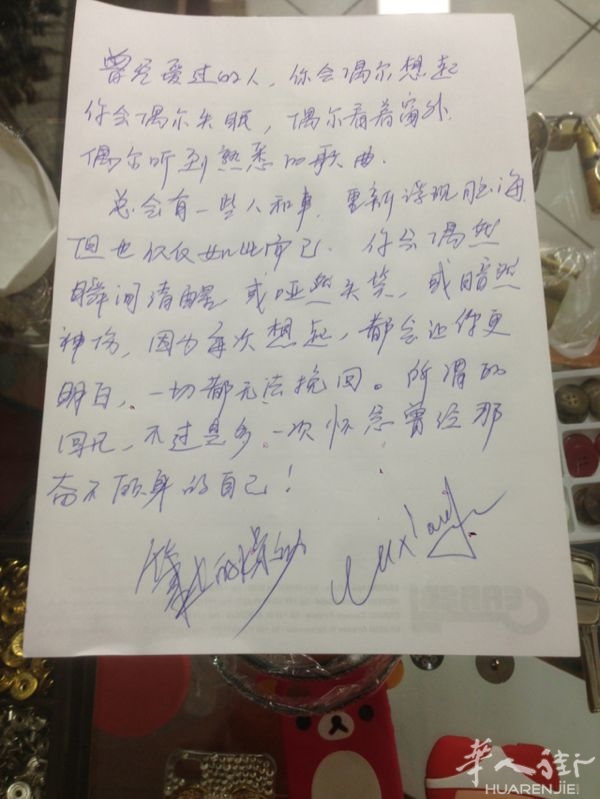 曾经爱过的人，你会偶尔想起
你会偶尔失眠，偶尔看着窗外.
偶尔听到熟悉的歌曲.
总会有一些人和事.重新浮现脑海.
但也仅仅如此而已.你会偶然
瞬间清醒 或哑然失笑，或暗然
神伤，因为每次想起，都会让你更
明白，一切都无法挽回。所谓的
回忆，不过是多一次怀念曾经那
奋不顾身的自己！
华人街
HUARENJIE